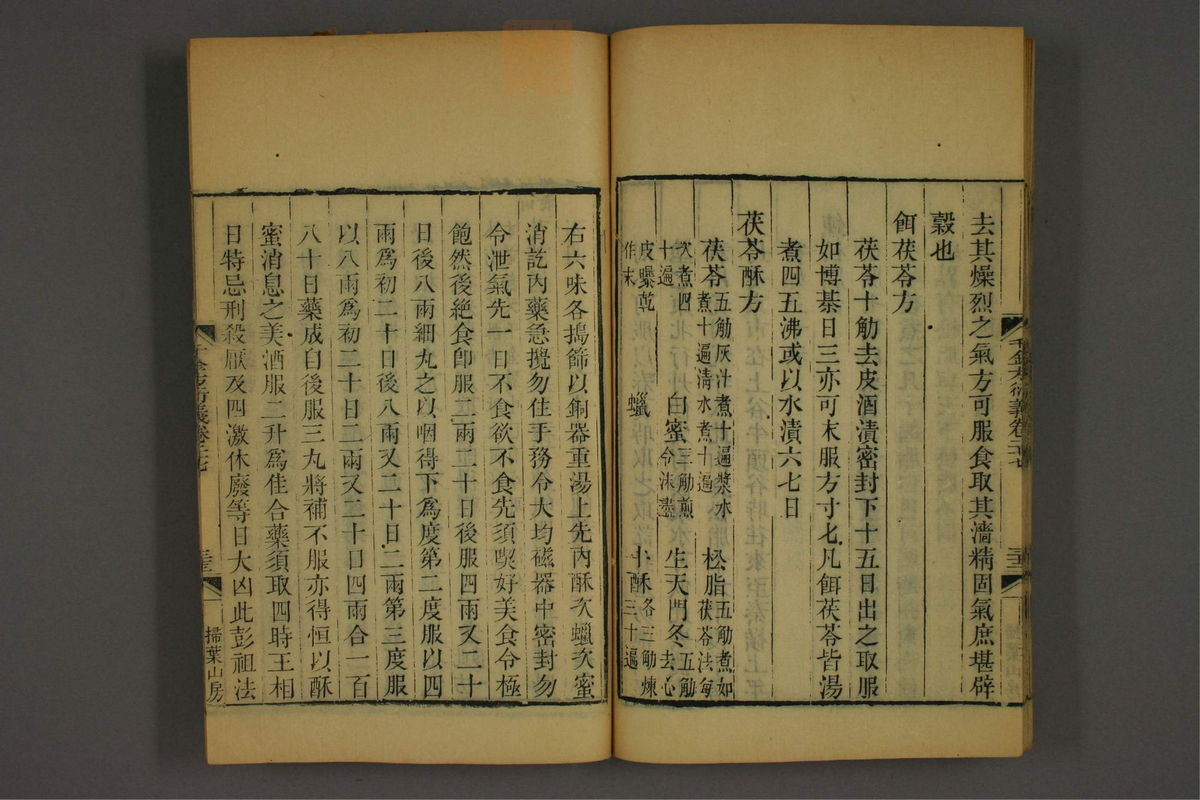 去其燥烈之氣方可服食取其濇精固氣庶堪辟
穀也
餌茯苓方
茯苓十觔去皮酒漬密封下十五日出之取服
如博棊日三亦可末服方寸匕凡餌茯苓皆湯
煮四五沸或以水漬六七日
茯苓酥方
茯苓五觔灰汁煮十遍漿水煮十遍清水煮十遍 松脂五觔煮如茯苓法每
次煮四十遍 白蜜三觔煎令沫盡 生天門冬五觔去心
皮曝乾作末 蠟 牛酥各三觔煉三十遍
右六味各搗篩以銅器重湯上先內酥次蠟次蜜
消訖內藥急攪勿住手務令大均磁器中密封勿
令泄氣先一日不食欲不食先須喫好美食令極
飽然後絕食卽服二兩二十日後服四兩又二十
日後八兩細丸之以咽得下爲度第二度服以四
兩爲初二十日後八兩又二十日二兩第三度服
以八兩爲初二十日二兩又二十日四兩合一百
八十日藥成自後服三丸將補不服亦得恒以酥
蜜消息之美酒服二升爲佳合藥須取四時王相
日特忌刑殺厭及四激休廢等日大凶此彭祖法
千金方衍義卷二十七
掃葉山房